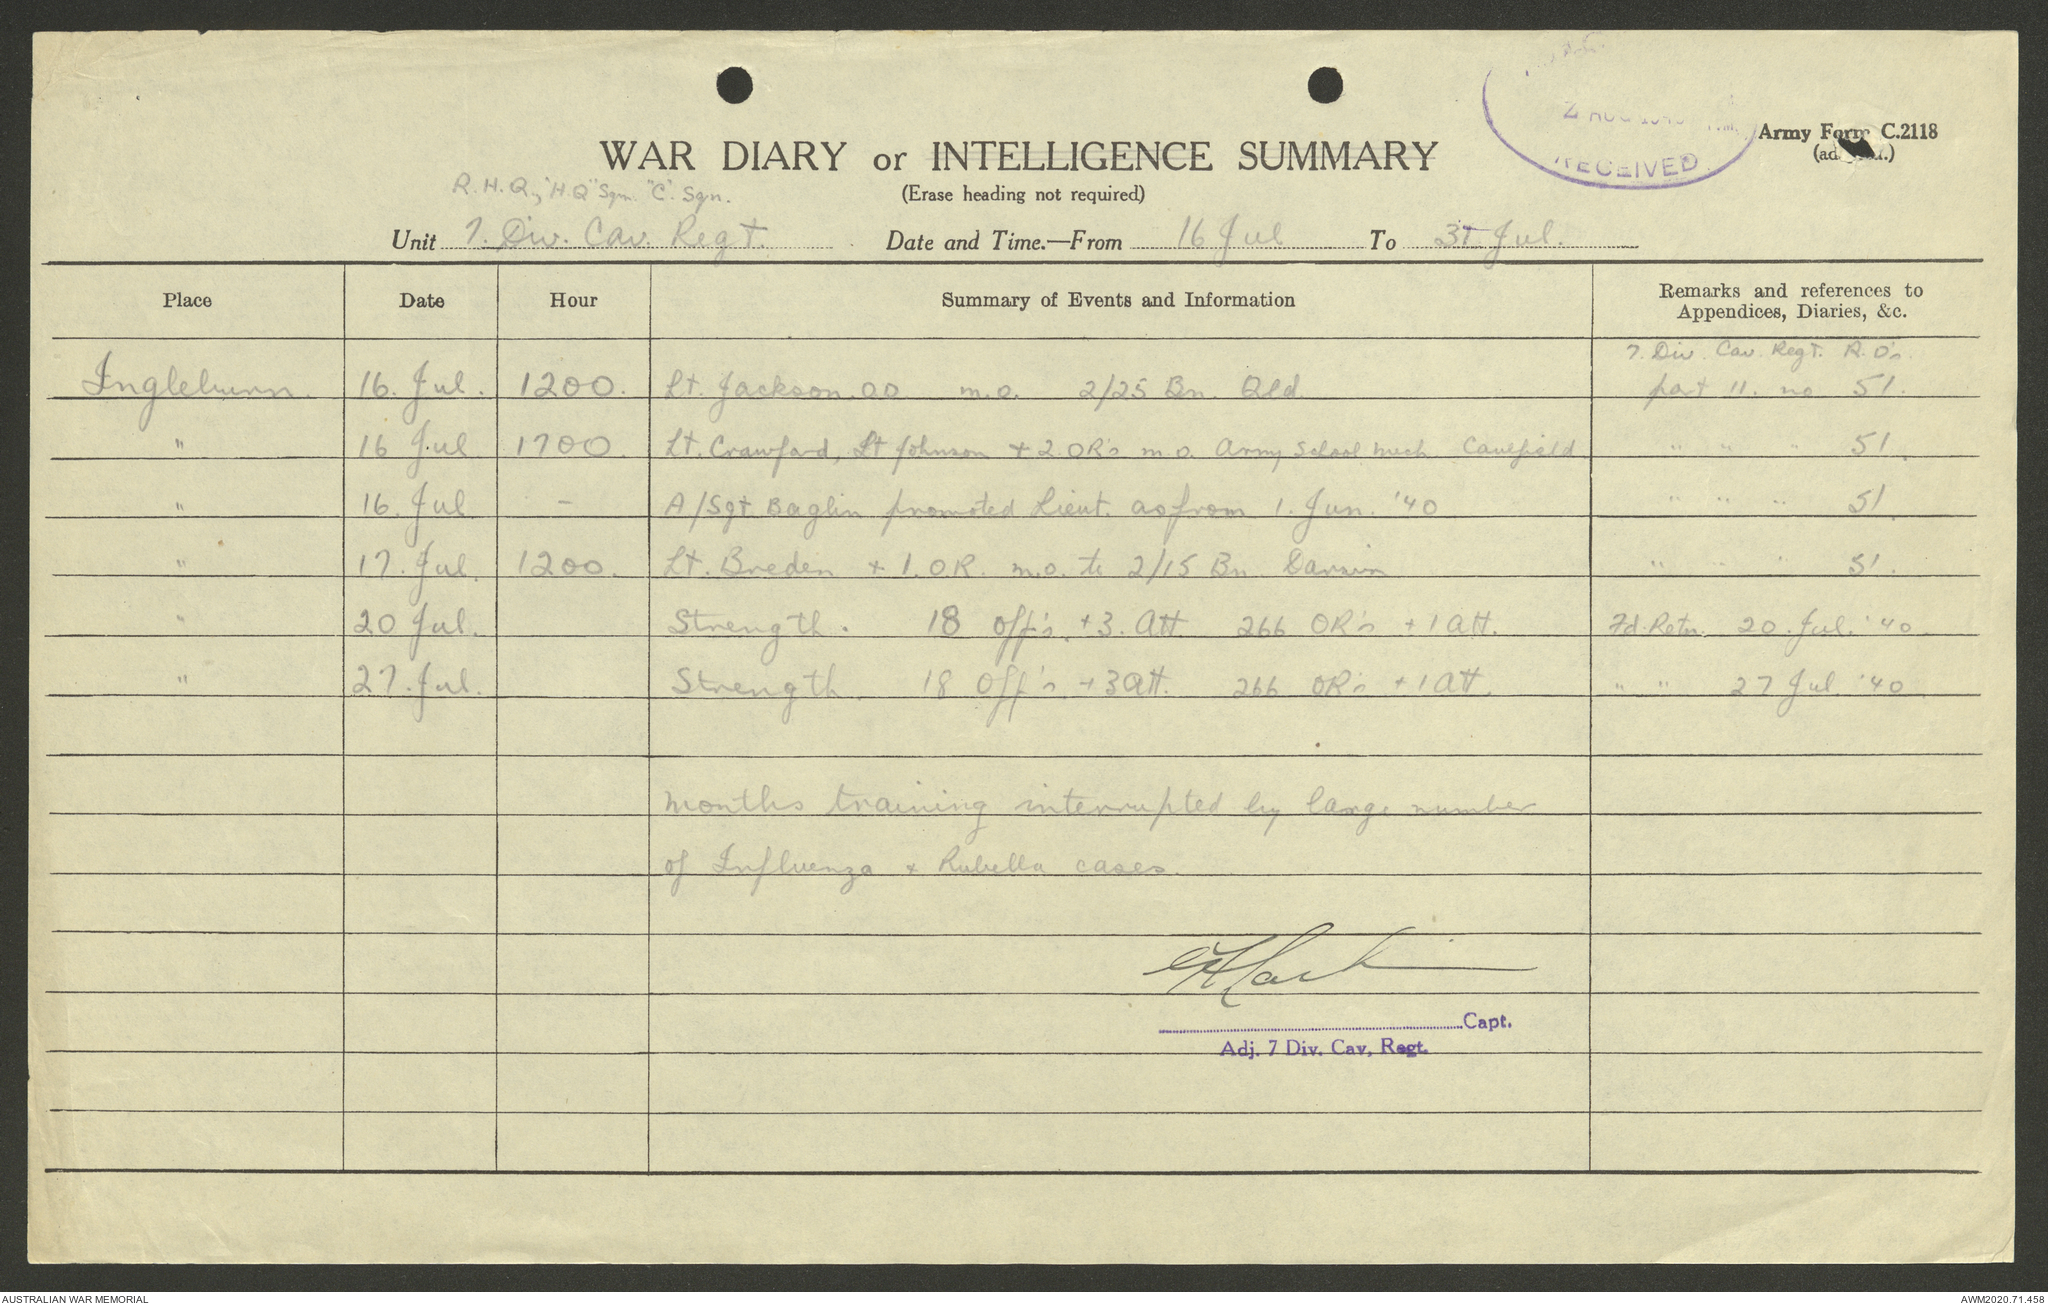 2 AUG 1940
RECEIVED
Army Form C.2118
WAR DIARY or INTELLIGENCE SUMMARY
(Erase heading not required)
R.H.Q., "H.Q" Sqn. "C" Sqn.
Unit 7. Div. Cav. Regt. Date and Time.—From 16 Jul To 31 Jul.
Place Date Hour Summary of Events and Information Remarks and references to
Appendices, Diaries, &c.
7. Div. Cav. Regt. R.O's.
Ingleburn 16. Jul. 1200. Lt. Jackson. m.o. 2/25 Bn. Qld part 11. no 51.
" 16 Jul 1700 Lt. Crawford, Lt Johnson + 2 OR's m.o. Army School Mech Caulfield " " " 51.
" 16. Jul - A/Sgt. Baglin promoted Lieut. as from 1. Jun. '40 " " " 51
" 17. Jul. 1200. Lt. Breden + 1. O.R. m.o. to 2/15 Bn. Darwin " " " 51.
" 20 Jul. Strength. 18 Off's. +3. Att 266 OR's +1 Att. Fd. Retn. 20. Jul. '40.
" 27. Jul. Strength. 18 Off's +3 Att. 266 OR's +1 Att. " " 27 Jul. '40
Months training interrupted by large number
of Influenza + Rubella cases.
Capt.
Adj. 7 Div. Cav. Regt.
AUSTRALIAN WAR MEMORIAL AWM2020.71.458